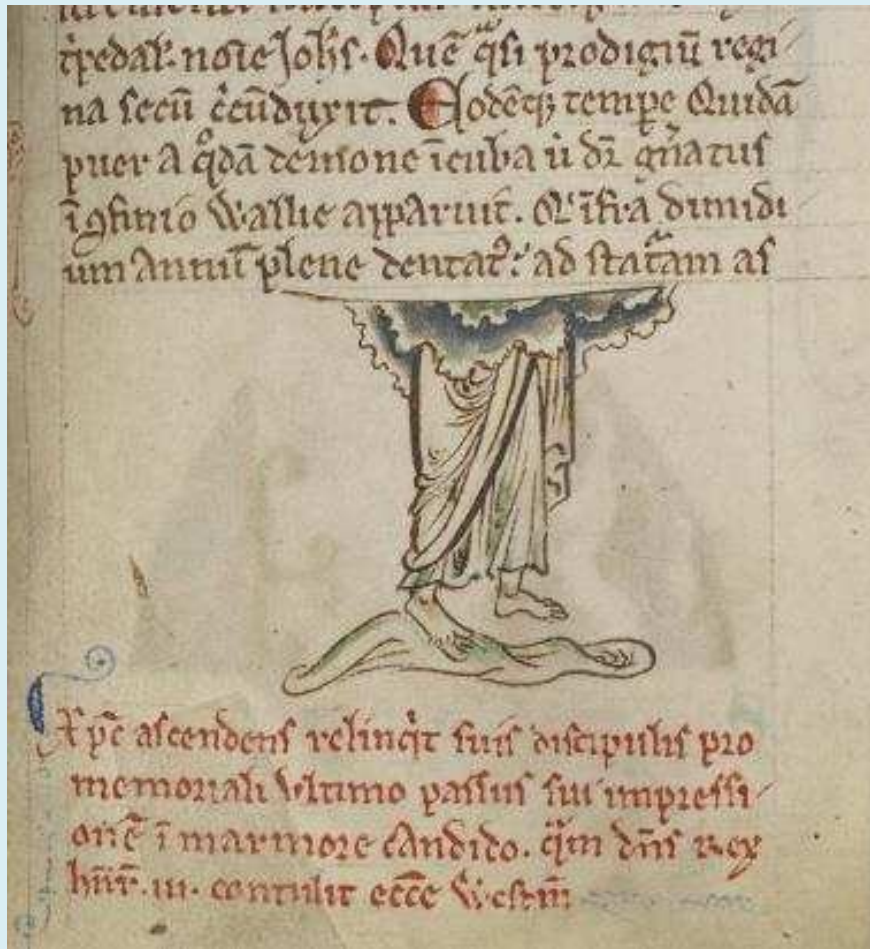 t̃pedal̃. noīe Joh̃s. Quē q̃si prodigiū regi
na secū c̃cūduxit. Eodēq; temp̃e Quidā
puer a q̃dā demone īcuba ů dr̃ gñatus
ī ꝯfinio Wallie apparuit. Q̃ īfra dimidi
um annū plene dentatꝰ: ad statãm as
X̃pc̃ ascendens relinq̃t suis discipulis pro
memoriali ultimo passus sui impressi
onē ī marmore candido. q̃m dñs rex
hñr̃. iii. contulit ecc̄e Westm̃